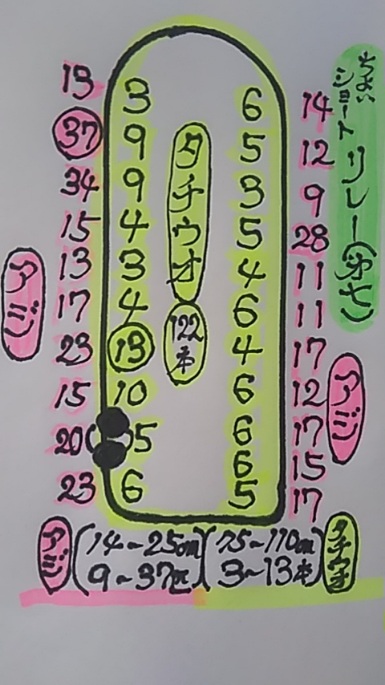 ちょい
ショートリレー(第七)
13 3 6 14
37 9 5 12
34 9 3 9
15 4 5 28
13 3 4 11
17 4 6 11
23 13 4 17
15 10 6 12
20 5 6 17
6 15
23 6 5 17
タチウオ
122本
アジ
アジ
アジ (14~25cm) (75~110cm) タチウオ
9~37匹 3~13本